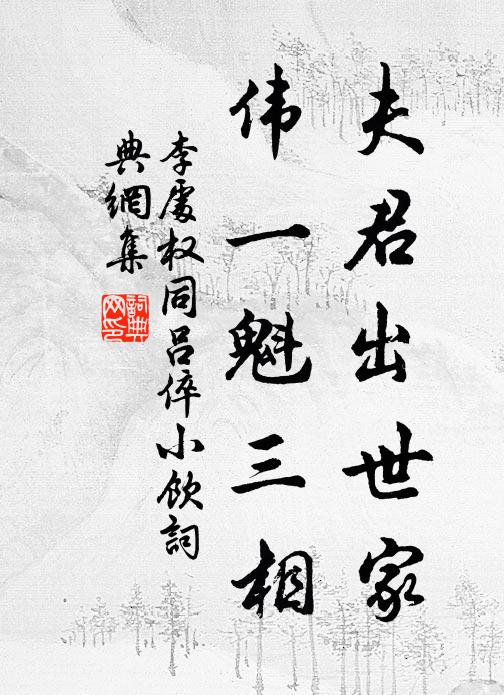 夫君出世家
伟一魁三相
李处权同吕倅小饮词
典網集
詞典網印